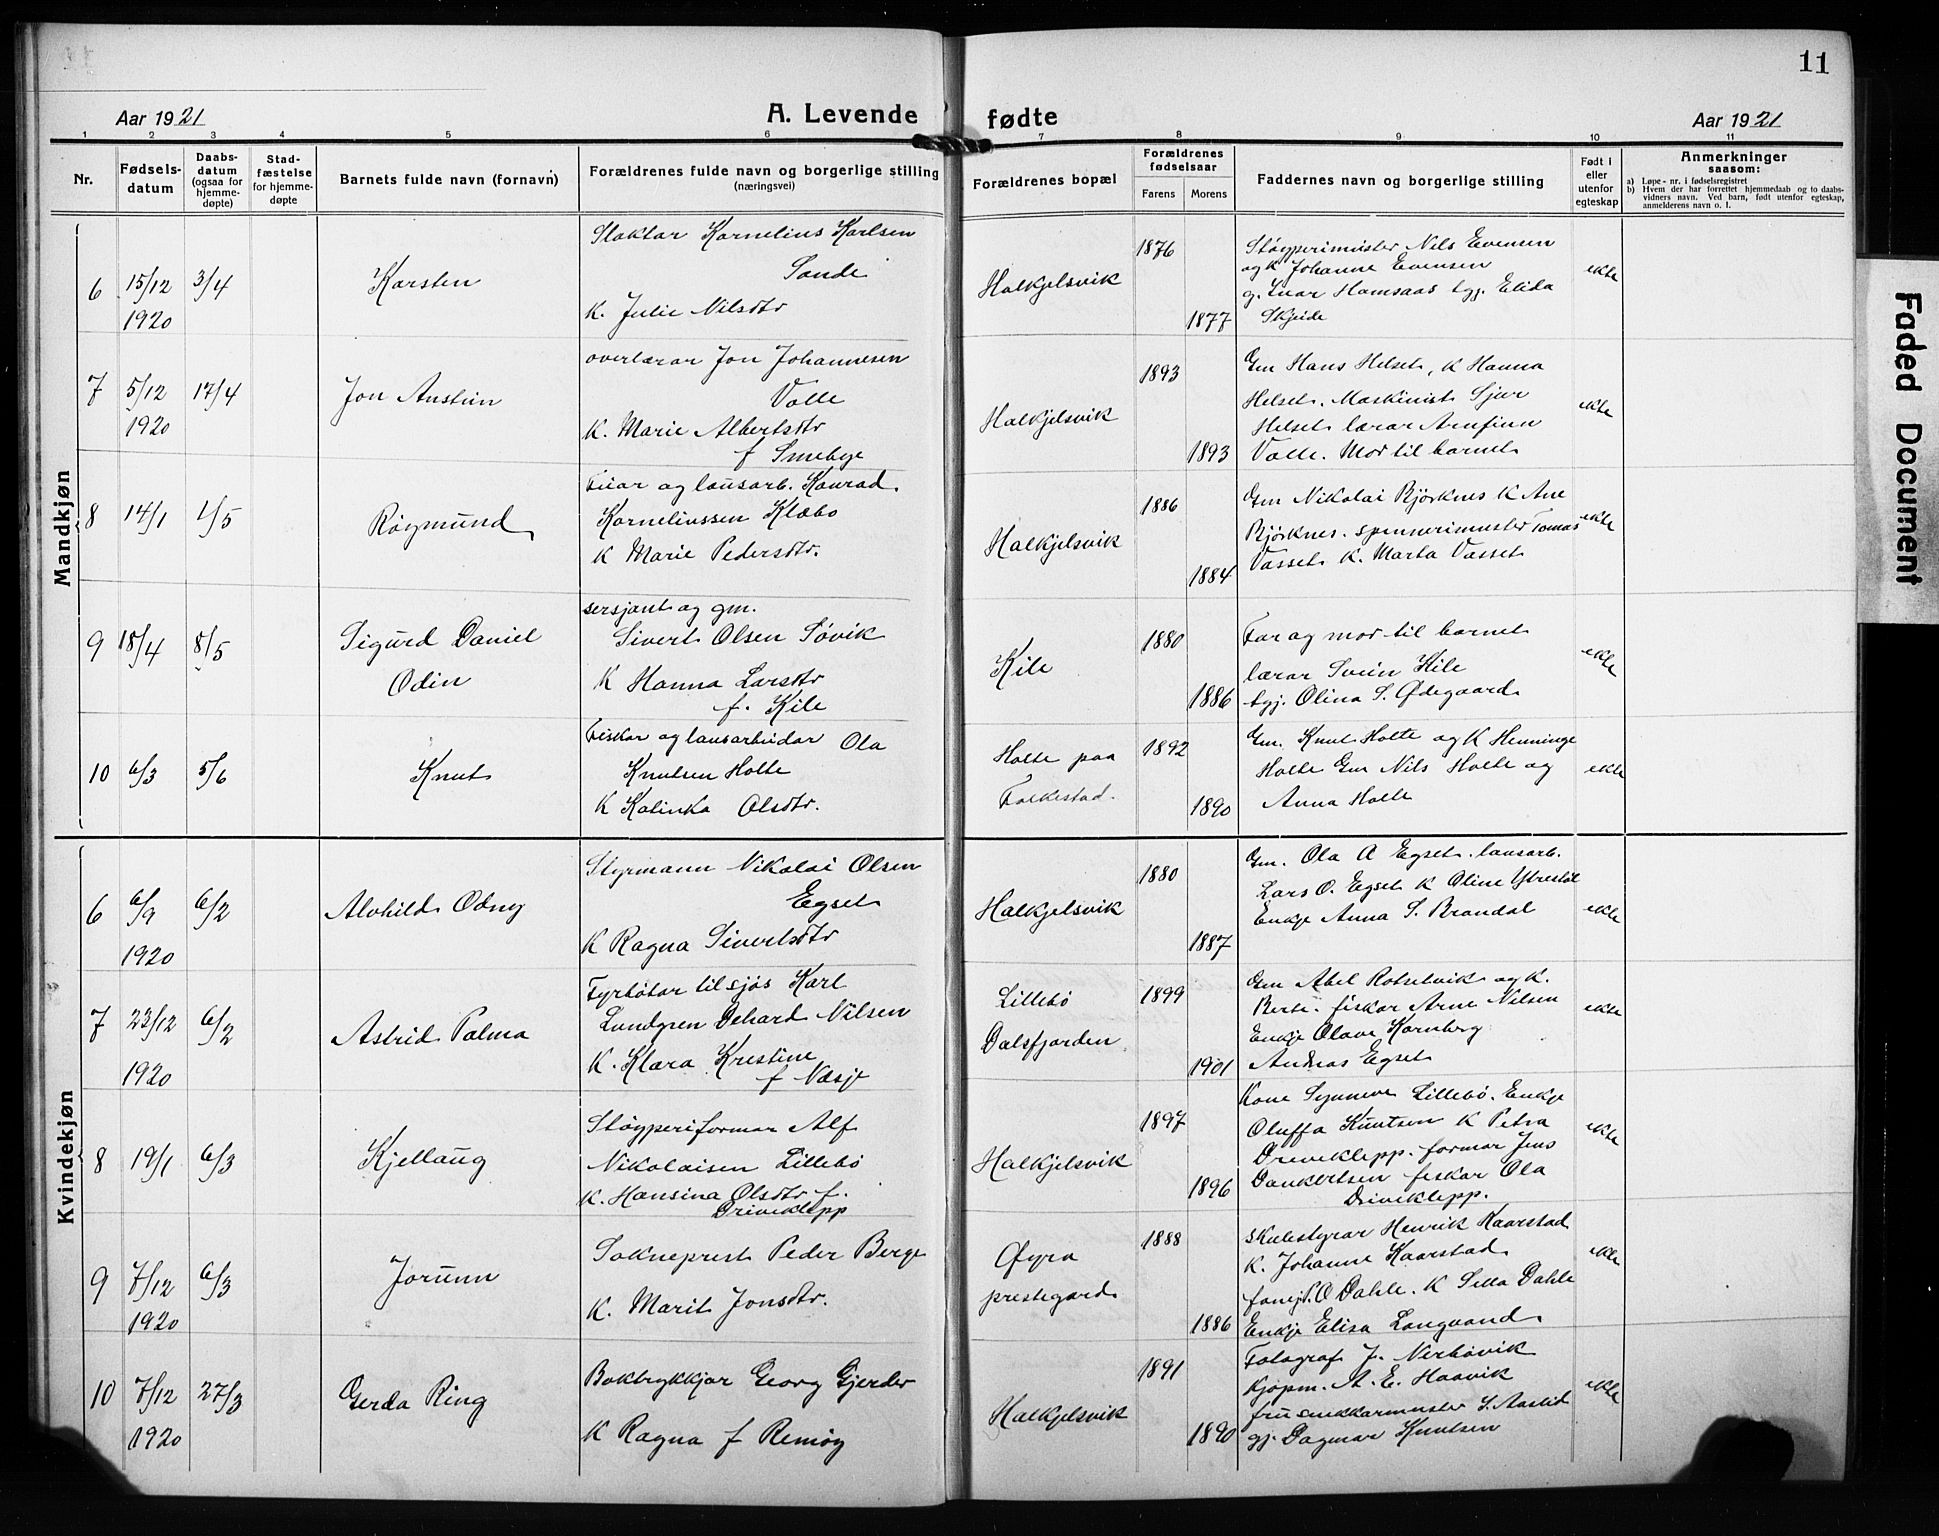 11
Aar 1921
A. Levende fødte
Aar 1921
1 2 3 4 5 6 7 8 9 10 11
Nr.
Fødsels-
datum
Daabs-
datum
(ogsaa for
hjemme-
døpte)
Stad-
fæstelse
for hjemme-
døpte
Barnets fulde navn (fornavn)
Forældrenes fulde navn og borgerlige stilling
(næringsvei)
Forældrenes bopæl
Forældrenes
fødselsaar
Farens
Morens
Faddernes navn og borgerlige stilling
Født i
eller
utenfor
egteskap
Anmerkninger
saasom:
a) Løpe-nr. i fødselsregistret
b) Hvem der har forrettet hjemmedaab og to daabs-
vidners navn. Ved barn, født utenfor egteskap,
anmelderens navn o. l.
Mandkjøn
6
15/12
1920
3/4
Karsten
Slaktar Kornelius Karlsen
Sande
K. Julie Nilsdtr
Halkjelsvik
1876
1877
Støyperimester Nils Evensen
og K Johanne Evensen
g. Ivar Hamsaas tgj. Elida
Skjeide
ekte
7
5/12
1920
17/4
Jon Austein
overlærar Jon Johannesen
Valle
K. Marie Albertsdtr
f Smebye
Halkjelsvik
1893
1893
Gm Hans Helset, K Hanna
Helset. Maskinist Sjur
Helset lærar Arnfinn
Valle. Mor til barnet
ekte
8
14/1
1/5
Røgmund
Fiar og lausarb. Konrad
Korneliussen Klæbo
K Marie Pedersdtr.
Halkjelsvik
1886
1884
Gm Nikolai Bjørknes K Ane
Bjørknes. spennerimester Tomas
Vasset K. Marta Vasset
ekte
9
18/4
8/5
Sigurd Daniel
Odin
sersjant og gm.
Sivert Olsen Søvik
K Hanna Larsdtr
f. Kile
Kile
1880
1886
Far og mor til barnet
lærar Svein Kile
tgj. Olina S. Ødegaard
ekte
10
6/3
5/6
Knut
Fiskar og lausarbeidar Ola
Knutsen Holte
K Kalinka Olsdtr.
Holte paa
Folkestad.
1892
1890
Gm. Knut Holte og K Henninge
Holte Gm Nils Holte og
Anna Holte
ekte
Kvindekjøn
6
6/9
1920
6/2
Alvhild Odny
Styrmann Nikolai Olsen
Egset
K Ragna Sivertsdtr
Halkjelsvik
1880
1887
Gm. Ola A Egset. lausarb.
Lars O. Egset K Oline Ytrestøl
Enkje Anna S. Brandal
ekte
7
23/12
1920
6/2
Astrid Palma
Fyrbøtar til sjøs Karl
Lundgren Dehard Nilsen
K. Klara Krestine
f Næsje
Lillebø
Dalsfjorden
1899
1901
Gm Abel Rotselvik og K.
Berte. fiskar Arne Nilsen
Enkje Olave Kornberg
Andreas Egset
ekte
8
19/1
6/3
Kjellaug
Støyperiformar Alf
Nikolaisen Lillebø
K. Hansina Olsdtr f.
Driveklepp
Halkjelsvik
1897
1896
Kone Synneve Lillebø. Enkje
Oluffa Knutsen K Petra
Driveklepp. formar Jens
Dankertsen fiskar Ola
Driveklepp.
ekte
9
7/12
1920
6/3
Jorunn
Sokneprest Peder Berge
K. Marit Jonsdtr.
Øyra
prestegard
1888
1886
skulestyrar Henrik Kaarstad
K. Johanne Kaarstad
O Dahle. K Silla Dahle
Enkje Elisa Langvand
ekte
10
7/12
1920
27/3
Gerda Ring
Boktrykkjar Georg Gjerder
K Ragna f Remøy
Halkjelsvik
1891
1890
Fotograf J. Nerbøvik
Kjøpm. A. E. Haavik
fru snikkarmester S. Aastid
gj. Dagmar Knutsen
ekte
Faded Document